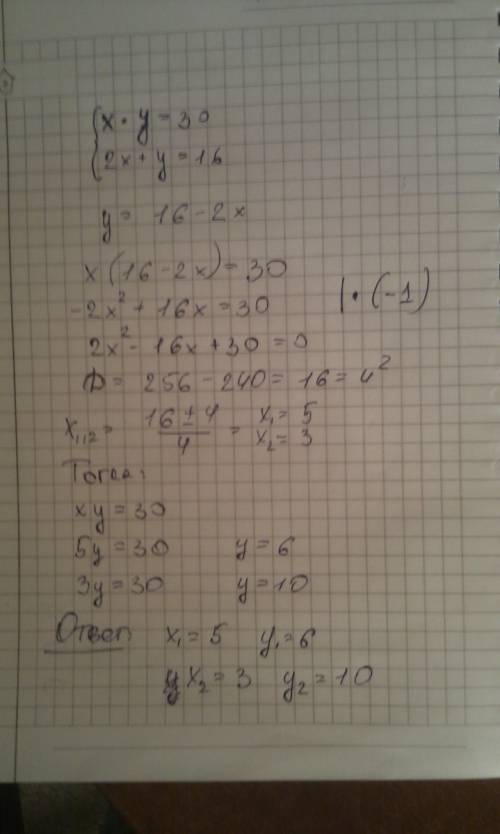 { x · y = 30
2x + y = 16
y = 16 - 2x
x(16 - 2x) = 30
-2x² + 16x = 30 | · (-1)
2x² - 16x + 30 = 0
D = 256 - 240 = 16 = 4²
x₁,₂ = (16 ± 4)/4 = x₁ = 5
x₂ = 3
Тогда:
xy = 30
5y = 30 y = 6
3y = 30 y = 10
Ответ x₁ = 5 y₁ = 6
x₂ = 3 y₂ = 10